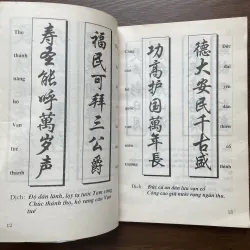 Thọ
thánh
năng
hô
Vạn
tuế
thanh
壽聖能呼萬岁声
福民可拜三公爵
Dịch: Độ dân lành, lạy ta tước Tam công
Chúc thánh thọ, hô vang câu Vạn
tuế
12
功高护国萬年長
德大安民千古盛
Dịch: Đức cả an dân lưu vạn cổ
Công cao giữ nước sáng ngàn thu.
13